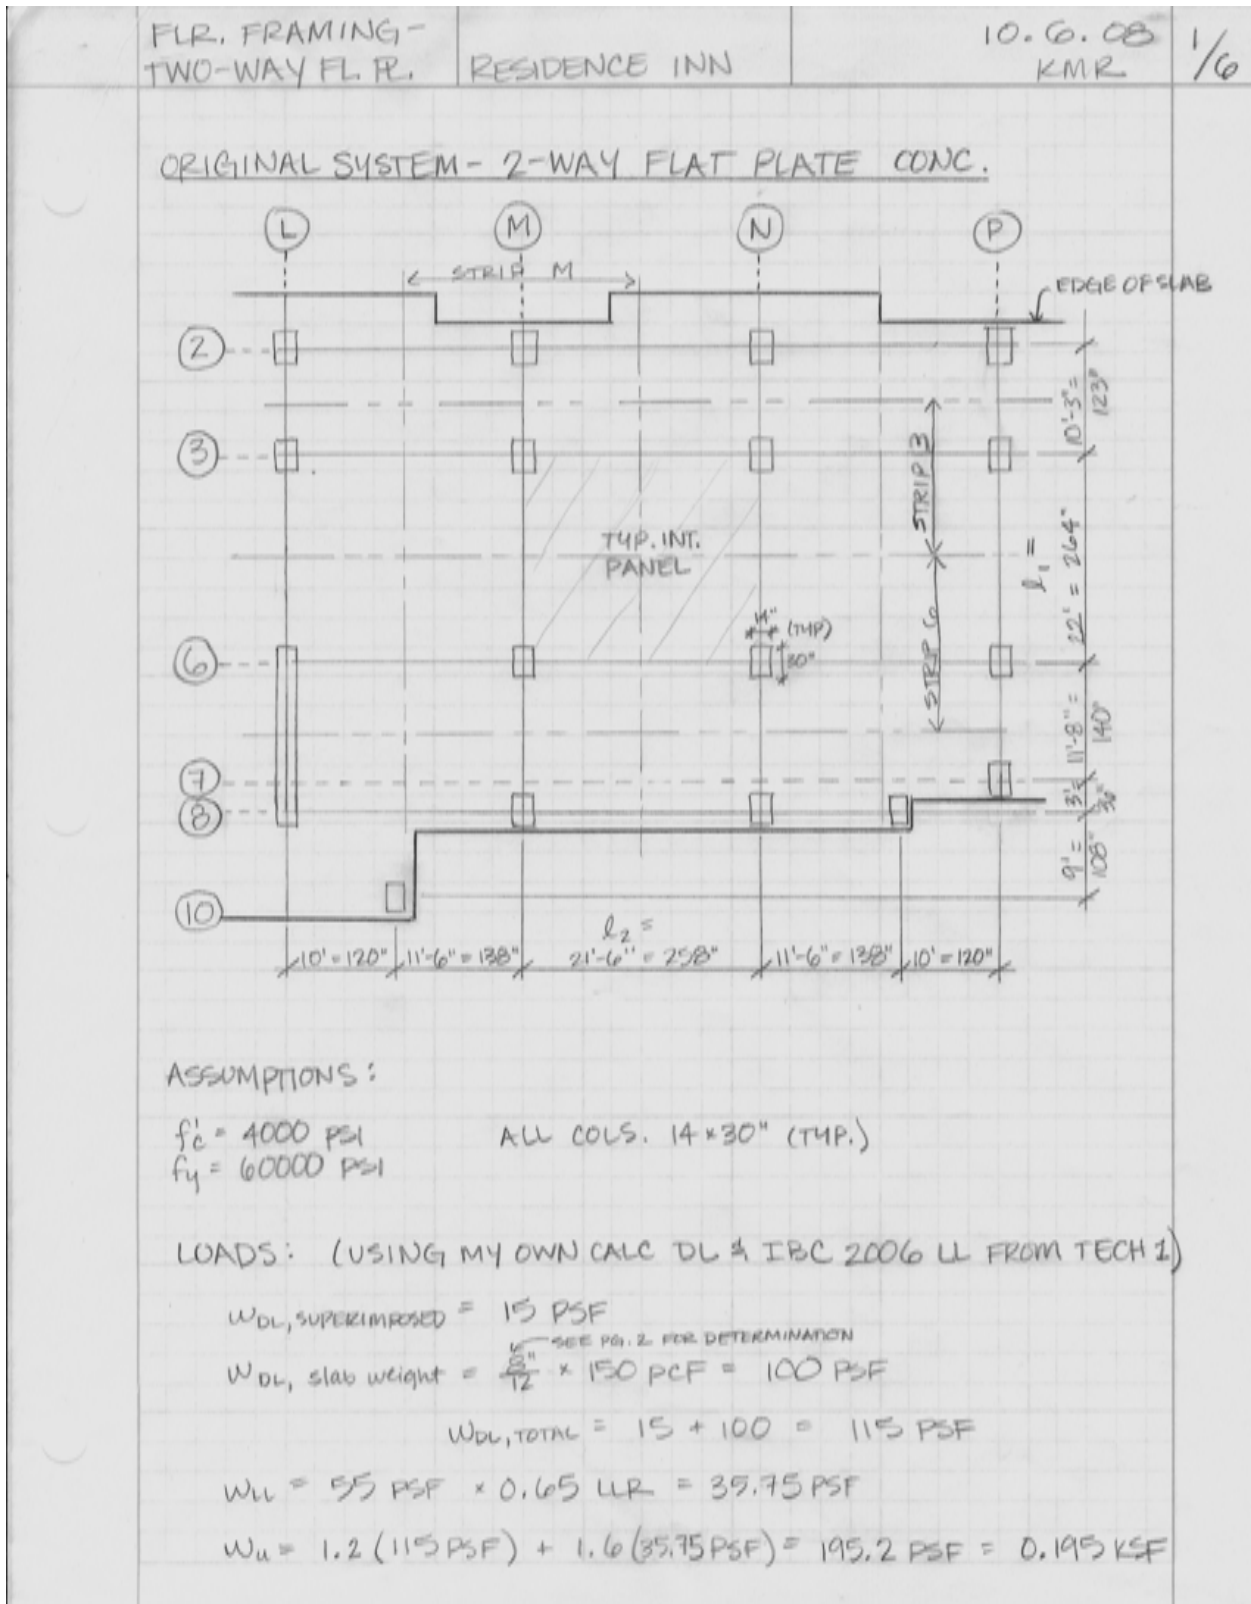 FLR. FRAMING-
TWO-WAY FL. PL.
RESIDENCE INN
10.6.08
KMR
1/6
ORIGINAL SYSTEM - 2-WAY FLAT PLATE CONC.
L
M
N
P
STRIP M
EDGE OF SLAB
2
10'-3" =
123"
3
STRIP 3
TYP. INT.
PANEL
l₁ =
22' = 264"
14"
(TYP)
30"
6
STRIP 6
11'-8" =
140"
7
3' =
36"
8
9' =
108"
10
l₂ =
10' = 120"
11'-6" = 138"
21'-6" = 258"
11'-6" = 138"
10' = 120"
ASSUMPTIONS:
f'c = 4000 PSI
ALL COLS. 14 × 30" (TYP.)
fy = 60000 PSI
LOADS: (USING MY OWN CALC DL & IBC 2006 LL FROM TECH 1)
WDL, SUPERIMPOSED = 15 PSF
SEE PG. 2 FOR DETERMINATION
WDL, slab weight = 8"/12 × 150 PCF = 100 PSF
WDL, TOTAL = 15 + 100 = 115 PSF
WLL = 55 PSF × 0.65 LLR = 35.75 PSF
Wu = 1.2 (115 PSF) + 1.6 (35.75 PSF) = 195.2 PSF = 0.195 KSF